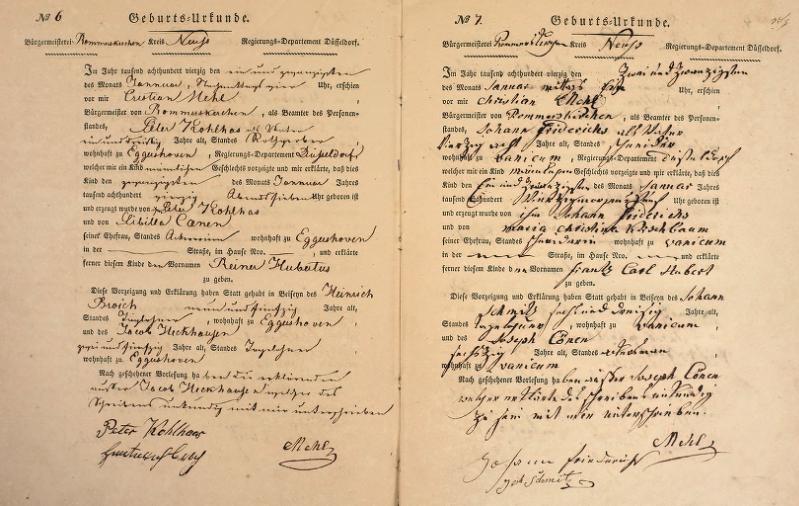 № 6 Geburts-Urkunde.
Bürgermeisterei Rommerskirchen Kreis Neuss Regierungs-Departement Düsseldorf.
Im Jahr tausend achthundert vierzig den ein und zwanzigsten
des Monats Januar, Nachmittags Uhr, erschien
vor mir Cristian Mehl
Bürgermeister von Rommerskirchen, als Beamter des Personen-
standes, Peter Kohlhas als Vater
ein und dreißig Jahr alt, Standes
wohnhaft zu Eggershoven, Regierungs-Departement Düsseldorf
welcher mir ein Kind männlichen Geschlechts vorzeigte und mir erklärte, daß dies
Kind den zwanzigsten des Monats Januar Jahrs
tausend achthundert vierzig Abends sieben Uhr geboren ist
und erzeugt wurde von Peter Kohlhas
und von Sibilla Canen
seiner Ehefrau, Standes Ackerin wohnhaft zu Eggershoven
in der Straße, im Hause Nro. , und erklärte
ferner diesem Kinde den Vornamen Reiner Hubertus
zu geben.
Diese Vorzeigung und Erklärung haben Statt gehabt in Beiseyn des Heinrich
Broich neun und fünfzig Jahre alt,
Standes Taglöhner, wohnhaft zu Eggershoven
und des Jacob Heckhausen
zwei und fünfzig Jahre alt, Standes Taglöhner
wohnhaft zu Eggershoven
Nach geschehener Vorlesung haben die erklärenden
außer Jacob Heckhausen welcher des
Schreibens unkundig mit mir unterschrieben
Peter Kohlhas
Mehl
№ 7. Geburts-Urkunde.
Bürgermeisterei Rommerskirchen Kreis Neuss Regierungs-Departement Düsseldorf.
Im Jahr tausend achthundert vierzig den zwei und zwanzigsten
des Monats Januar mittags Uhr, erschien
vor mir Christian Mehl
Bürgermeister von Rommerskirchen, als Beamter des Personen-
standes, Johann Friderichs als Vater
vierzig acht Jahr alt, Standes Schneider
wohnhaft zu vanicum, Regierungs-Departement Düsseldorf
welcher mir ein Kind männlichen Geschlechts vorzeigte und mir erklärte, daß dies
Kind den ein und zwanzigsten des Monats Januar Jahrs
tausend achthundert vierzig Uhr geboren ist
und erzeugt wurde von ihm Johann Friderichs
und von maria Christina Kirschbaum
seiner Ehefrau, Standes Schneiderin wohnhaft zu vanicum
in der Straße, im Hause Nro. und erklärte
ferner diesem Kinde den Vornamen Frantz Carl Hubert
zu geben.
Diese Vorzeigung und Erklärung haben Statt gehabt in Beiseyn des Johann
Schmitz sechs und dreisig Jahre alt,
Standes tagelöhner, wohnhaft zu vanicum
und des Joseph Cönen
sechszig Jahre alt, Standes ackersman
wohnhaft zu vanicum
Nach geschehener Vorlesung haben außer Joseph Cönen
welcher erklärte des schreibens unkundig
zu sein mit mir unterschrieben.
Mehl
Johann Friederichs
Joh Schmitz